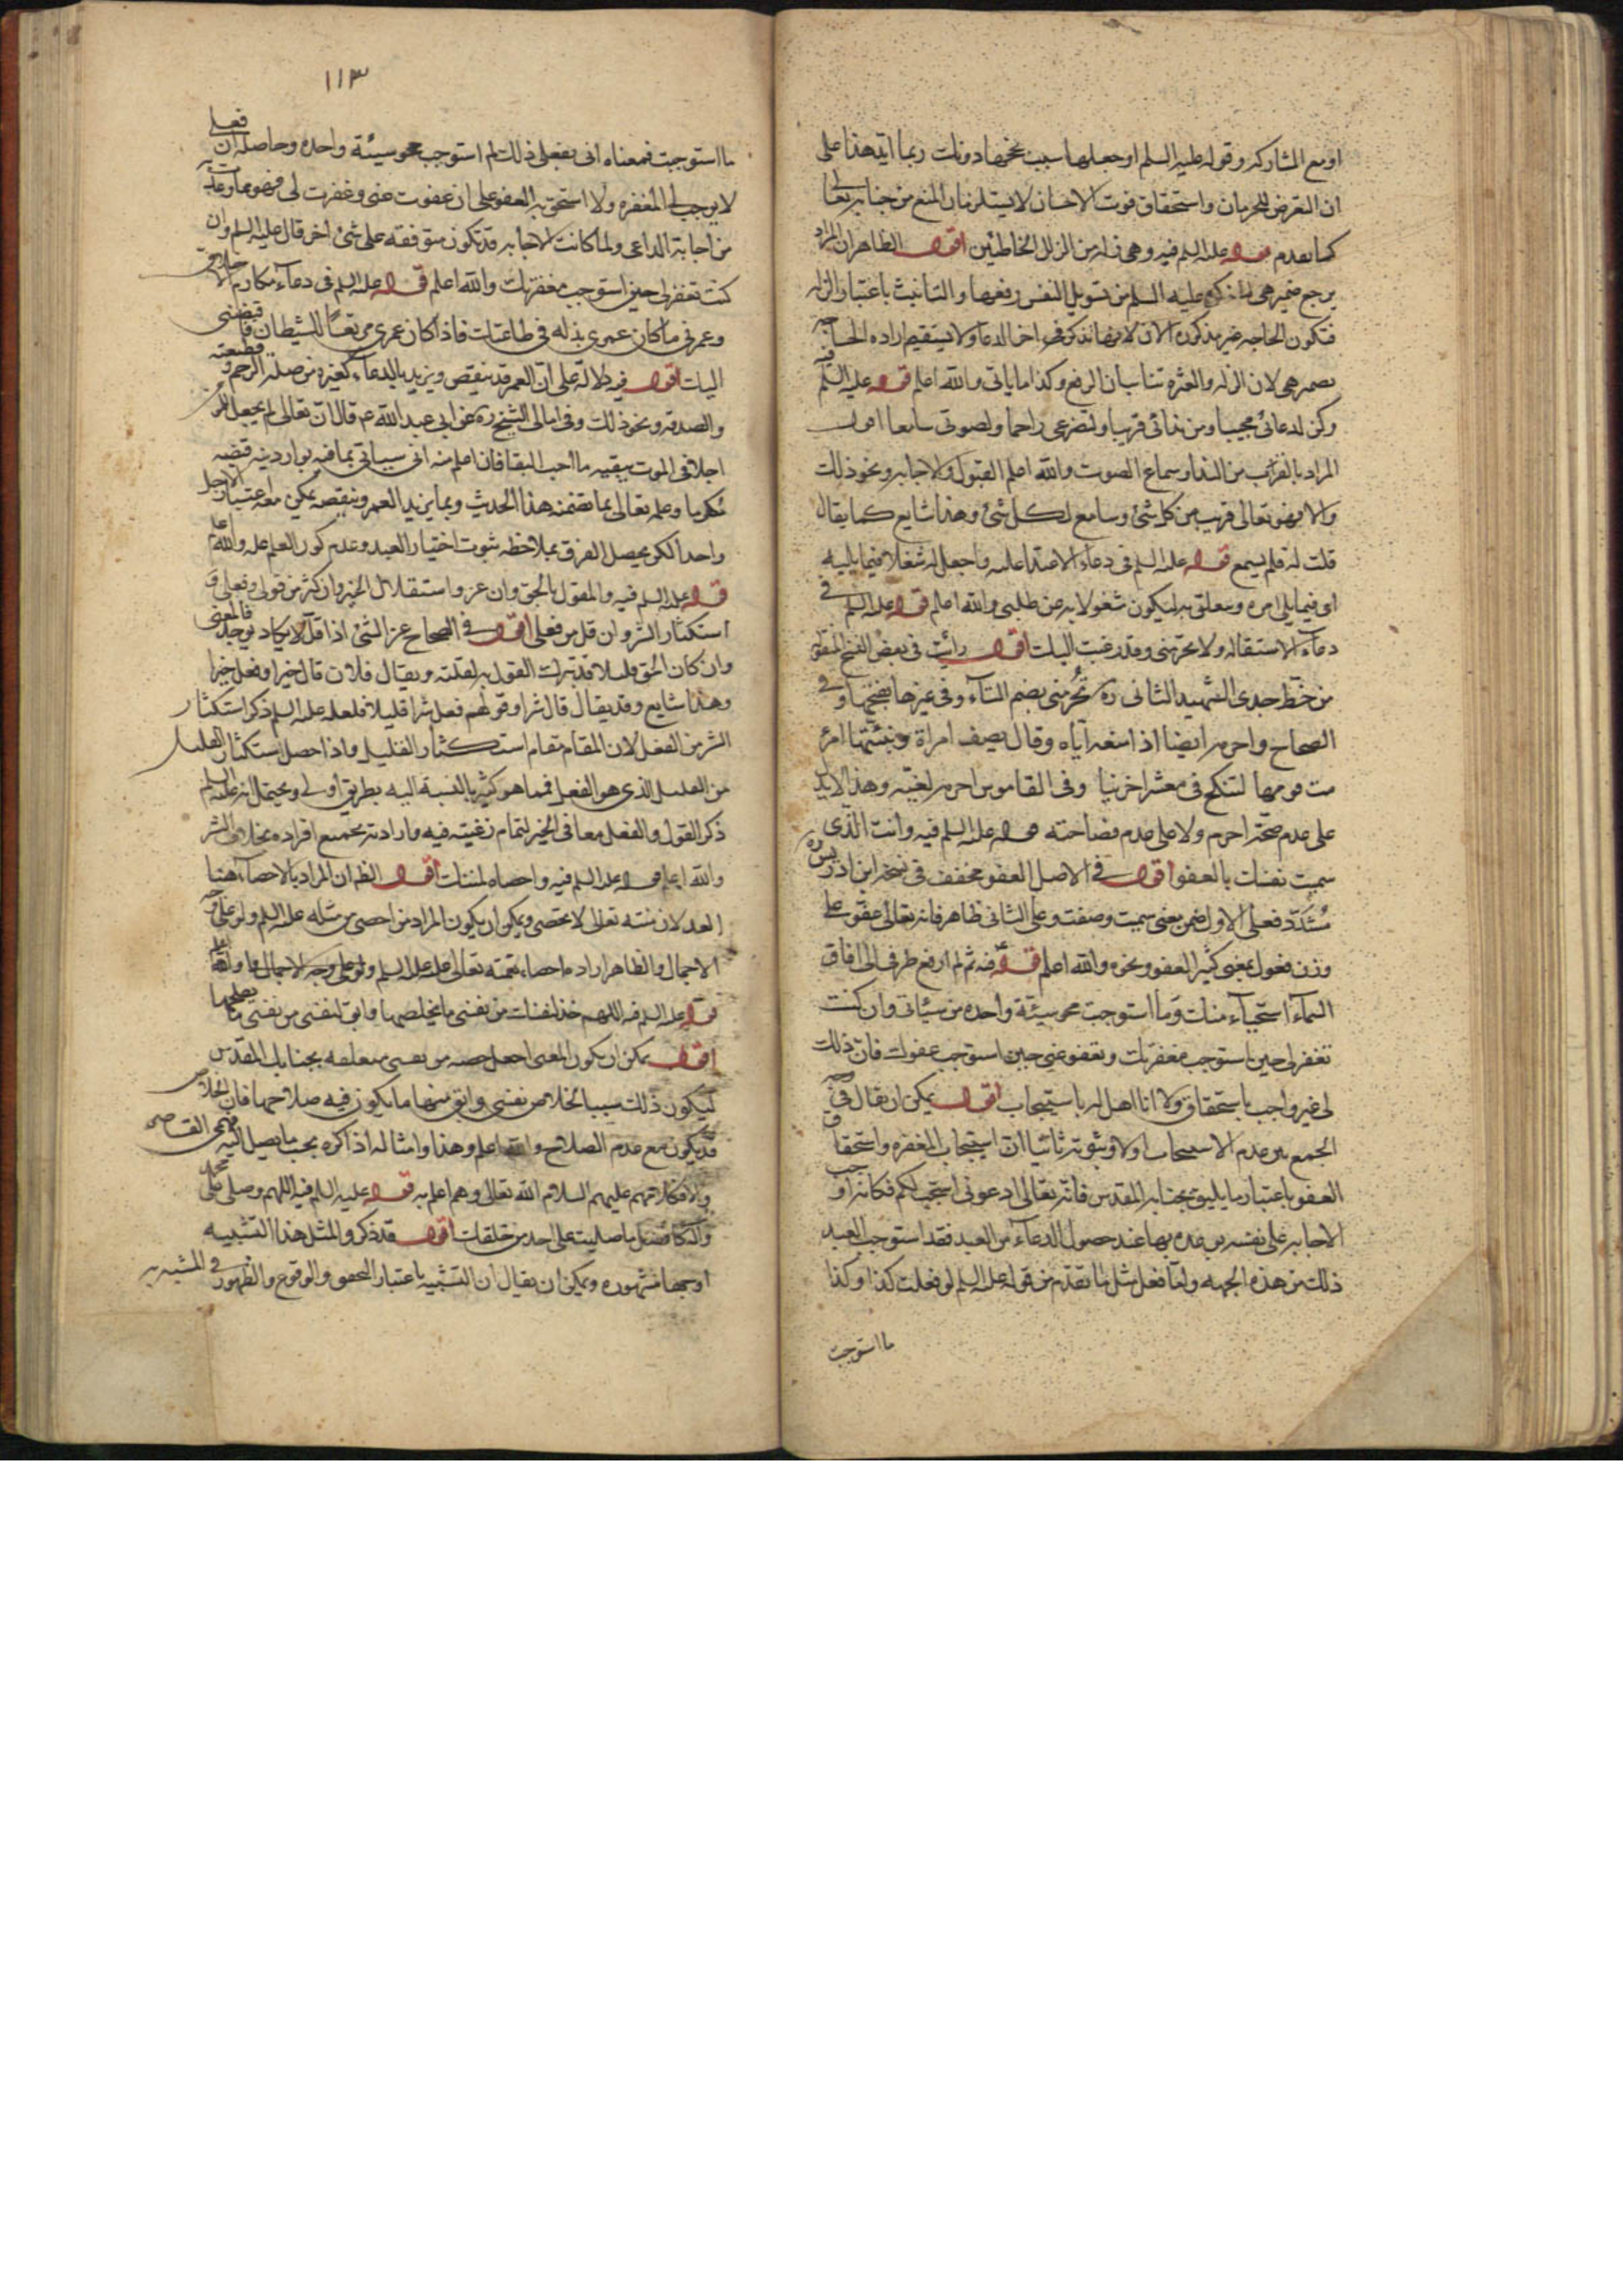 او مع المشاركه وقوله عليه السلم او جعلها سبب نحوها دونك ربما ايد هذا على
ان التعرض للحرمان واستحقاق فوت الاحسان لا يستلزمان المنع من جنابه تعالى
كما تقدم قوله عليه السلم فيه وهى زله من الزلل الخاطئين اقول الظاهر ان المراد
يرجع ضمير هى عليه السلم من تسويل النفس رفعها والتانيث باعتبار الزله
فتكون الحاجه غير مذكوره الان لانها تذكر فى اخر الدعاء ولا يستقيم اراده الحاجه
بضمير هى لان الزله والعثره تناسبان الرفع وكذا ما ياتى والله اعلم قوله عليه السلم
وكن لدعائى مجيبا ومن ندائى قريبا ولتضرعى راحما ولصوتى سامعا اقول
المراد بالقرب من الندا وسماع الصوت والله اعلم القبول والاجابه ونحو ذلك
والا فهو تعالى قريب من كل شئ وسامع لكل شئ وهذا شايع كما يقال
قلت له فلم يسمع قوله عليه السلم فى دعاء الاعتدا عليه واجعل له شغلا فيما يليه
اى فيما يلى امره ويتعلق به ليكون شغولا به عن طلبى والله اعلم قوله عليه السلم فى
دعاء الاستقاله ولا تحرمنى وقد رغبت اليك اقول رأيت فى بعض النسخ المنقول
من خط جدى الشهيد الثانى ره تُحرمنى بضم التاء وفى غيرها بفتحها وفى
الصحاح واحرمه ايضا اذا منعه اياه وقال يصف امراة ونبئتها احر
مت قومها لتنكح فى معشر اخرينا وفى القاموس احرمه لغيه وهذا لا يدل
على عدم صحة احرم ولا على عدم فصاحته قوله عليه السلم فيه وانت الذى
سميت نفسك بالعفو اقول فى الاصل العفو مخفف فى نسخه ابن ادريس ره
مُشَدّد فعلى الاول ضمن معنى سميت وصفت وعلى الثانى ظاهر فانه تعالى عفوّ على
وزن فعول بمعنى كثير العفو ونحوه والله اعلم قوله فيه ثم لم ارفع طرفى الى افاق
السماء استحياء منك وما استوجبت محو سيئة واحده من سيئاتى وان كنت
تغفر لى حين استوجب مغفرتك وتعفو عنى حين استوجب عفوك فان ذلك
لى غير واجب باستحقاق ولا انا اهل له باستيجاب اقول يمكن ان يقال فى وجه
الجمع بين عدم الاستيجاب اولا وثبوته ثانيا ان استيجاب المغفره واستحقاق
العفو باعتبار ما يليق بجنابه المقدس فانه تعالى قال ادعونى استجب لكم فكانه اوجب
الاجابه على نفسه بوعده بها عند حصول الدعاء من العبد فقد استوجب العبد
ذلك من هذه الجهه واما فعل مثل ما تقدم من قوله عليه السلم لو فعلت كذا وكذا
ما استوجبت
١١٣
ما استوجبت فمعناه انى بفعلى ذلك لم استوجب محو سيئة واحده وحاصله ان فعلى
لا يوجب لى المغفره ولا استحق به العفو على ان عفوت عنى وغفرت لى فهو مما وعدت به
من اجابة الداعى ولما كانت الاجابه قد تكون متوقفه على شئ اخر قال عليه السلم وان
كنت تغفر لى حين استوجب مغفرتك والله اعلم قوله عليه السلم فى دعاء مكارم الاخلاق
وعمرنى ما كان عمرى بذله فى طاعتك فاذا كان عمرى مرتعاً للشيطان فاقبضنى
اليك اقول فيه دلالة على ان العمر قد ينقص ويزيد بالدعاء كغيره من صلة الرحم وقطيعته
والصدقه ونحو ذلك وفى امالى الشيخ ره عن ابى عبد الله ع قال ان تعالى لم يجعل للمؤمن
اجلا فى الموت يبقيه ما احب البقا فاذا علم منه انه سياتى بما فيه بوار دينه قبضه
مكرما وعلمه تعالى بما تضمنه هذا الحديث وبما يزيد العمر وينقصه يمكن معه اعتبار الاجل
واحدا لكن يحصل الفرق بملاحظه ثبوت اختيار العبد وعدم كون العلم عله والله اعلم
قوله عليه السلم فيه والقول بالحق وان عز واستقلال الخير وان كثر من قولى وفعلى و
استكثار الشر وان قل من فعلى اقول فى الصحاح عز الشئ اذا قل لا يكاد يوجد فالمعنى
وان كان الحق قليلا فقد يترك القول به لقلته ويقال فلان قال خيرا وفعل خيرا
وهذا شايع وقد يقال قال شرا وقولهم فعل شرا قليلا فلعله عليه السلم ذكر استكثار
الشر من الفعل لان المقام مقام استكثار القليل واذا حصل استكثار القليل
من القليل الذى هو الفعل فما هو كثير بالنسبة اليه بطريق اولى ويحتمل انه عليه السلم
ذكر القول والفعل معا فى الخير لتمام رغبته فيه وارادته بجميع افراده بخلاف الشر
والله اعلم قوله عليه السلم فيه واحصاه لمننك اقول الظ ان المراد بالاحصاء هنا
العد لان مننه تعالى لا تحصى ويمكن ان يكون المراد من احصى من مثله عليه السلم ولو على وجه
الاجمال والظاهر اراده احصاء نعمه تعالى عليه عليه السلم ولو على وجه الاجمال والله اعلم
قوله عليه السلم فيه اللهم خذ لنفسك من نفسى ما يخلصها وابق لنفسى من نفسى ما يصلحها
اقول يمكن ان يكون المعنى اجعل حصه من نفسى متعلقه بجنابك المقدس
ليكون ذلك سببا لخلاص نفسى وابق منها ما يكون فيه صلاحها فان الخلاص
قد يكون مع عدم الصلاح والله اعلم وهذا وامثاله اذا ذكره بحسب ما يصل اليه فهمى القاصر
والا فكلامهم عليهم السلام الله تعالى وهم اعلم به قوله عليه السلم فيه اللهم وصلى على محمد
وآله كافضل ما صليت على احد من خلقك اقول قد ذكروا لمثل هذا التشبيه
اوجها مشهوره ويمكن ان يقال ان التشبيه باعتبار التحقق والوقوع والظهور فى المشبه به